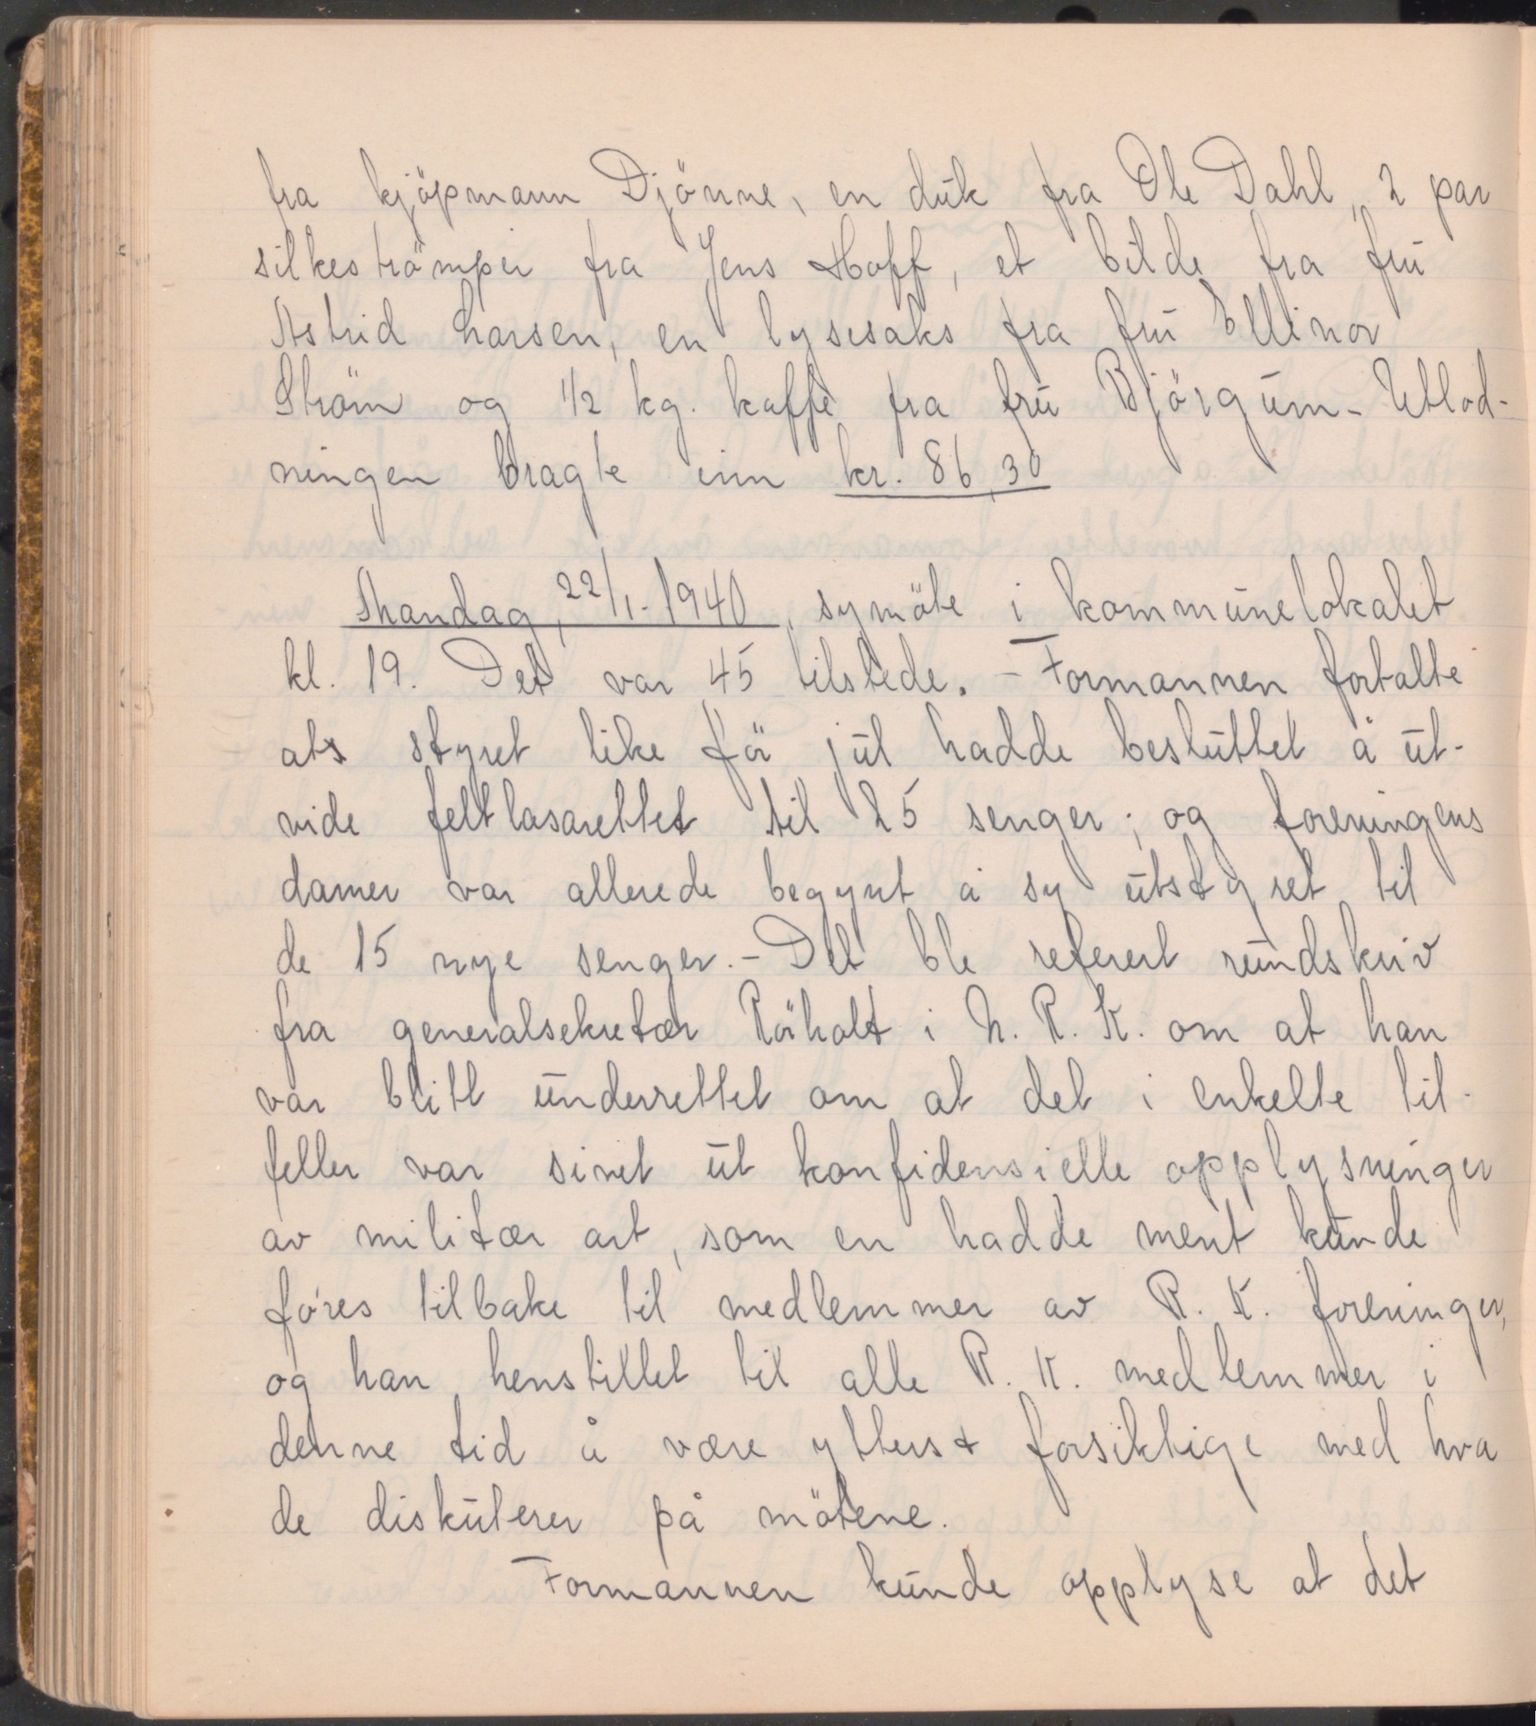 fra kjöpmann Djönne, en duk fra Ole Dahl, 2 par
silkeströmper fra Jens Hoff, et bilde fra fru
Astrid Larsen, en lysesaks fra fru Ellinor
Ström og 1/2 kg. kaffe fra fru Björgum - Utlod-
ningen bragte inn kr. 86,30
Mandag, 22/1-1940, symöte i kommunelokalet
kl. 19. Det var 45 tilstede. - Formannen fortalte
at styret like för jul hadde besluttet å ut-
vide feltlasarettet til 25 senger; og foreningens
damer var allerede begynt å sy utstyret til
de 15 nye senger. - Det ble referert rundskriv
fra generalsekretær Rörholt i N. R. K. om at han
var blitt underrettet om at det i enkelte til-
feller var sivet ut konfidensielle opplysninger
av militær art, som en hadde ment kunde
föres tilbake til medlemmer av R. K. foreninger,
og han henstillet til alle R. K. medlemmer i
denne tid å være ytterst forsiktige med hva
de diskuterer på mötene.
Formannen kunde opplyse at det